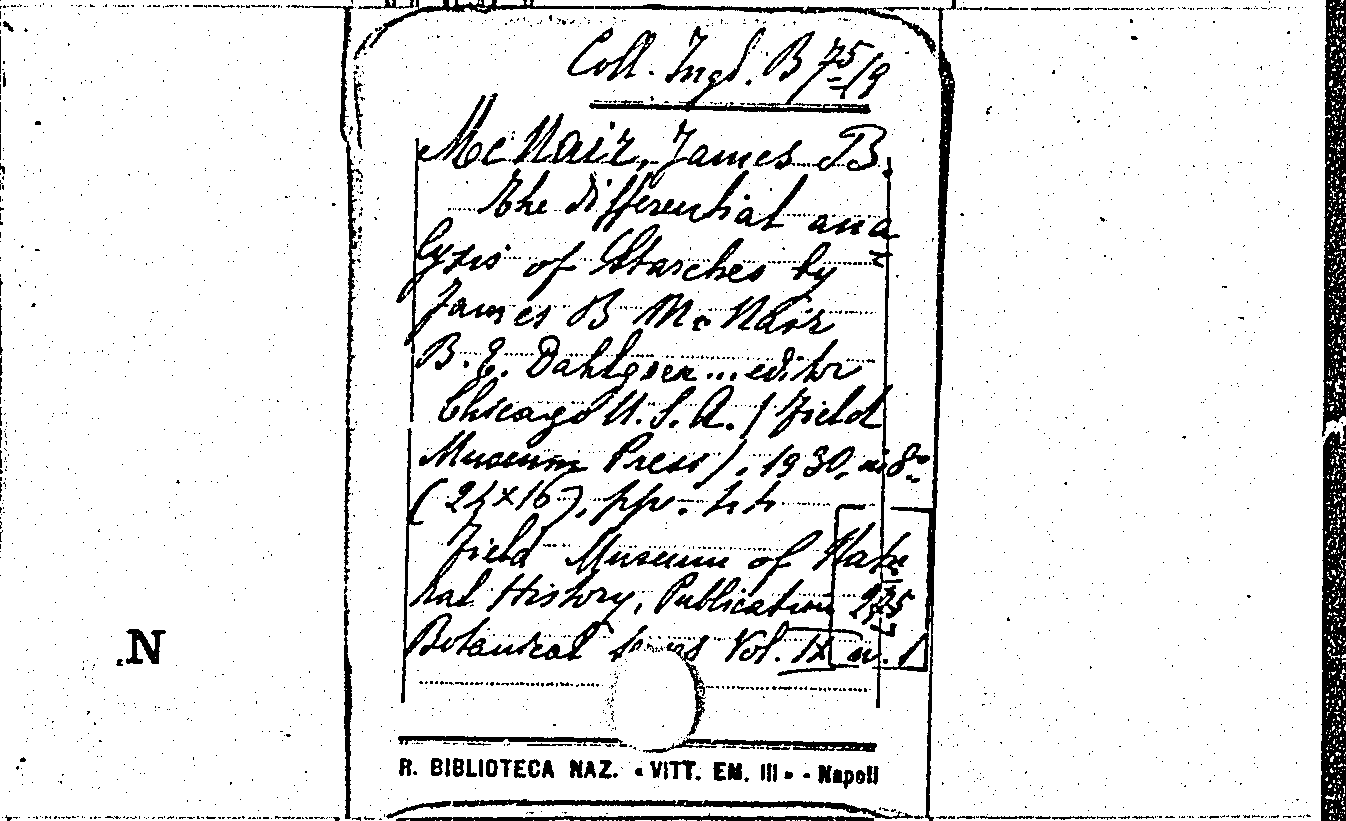 Coll. Ingl. B 75/9
McNair, James B.
The differential ana
lysis of Starches by
James B Mc Nair
B. E. Dahlgren... editor
Chicago U.S.A. (Field
Museum Press). 1930, in 8º
(24x16), pp. 44
Field Museum of Natu
ral History, Publication 275
Botanical Series Vol. IX n. 1
.N
R. BIBLIOTECA NAZ. « VITT. EM. III » - Napoli